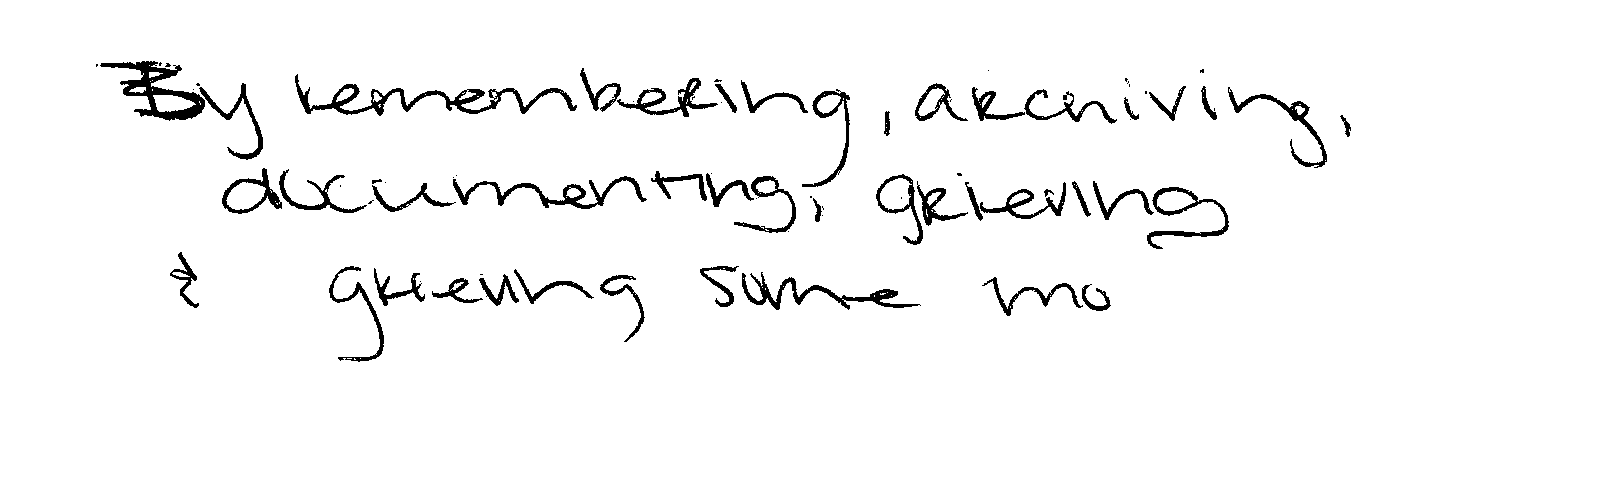 By remembering, archiving,
documenting, grieving
& grieving some mo